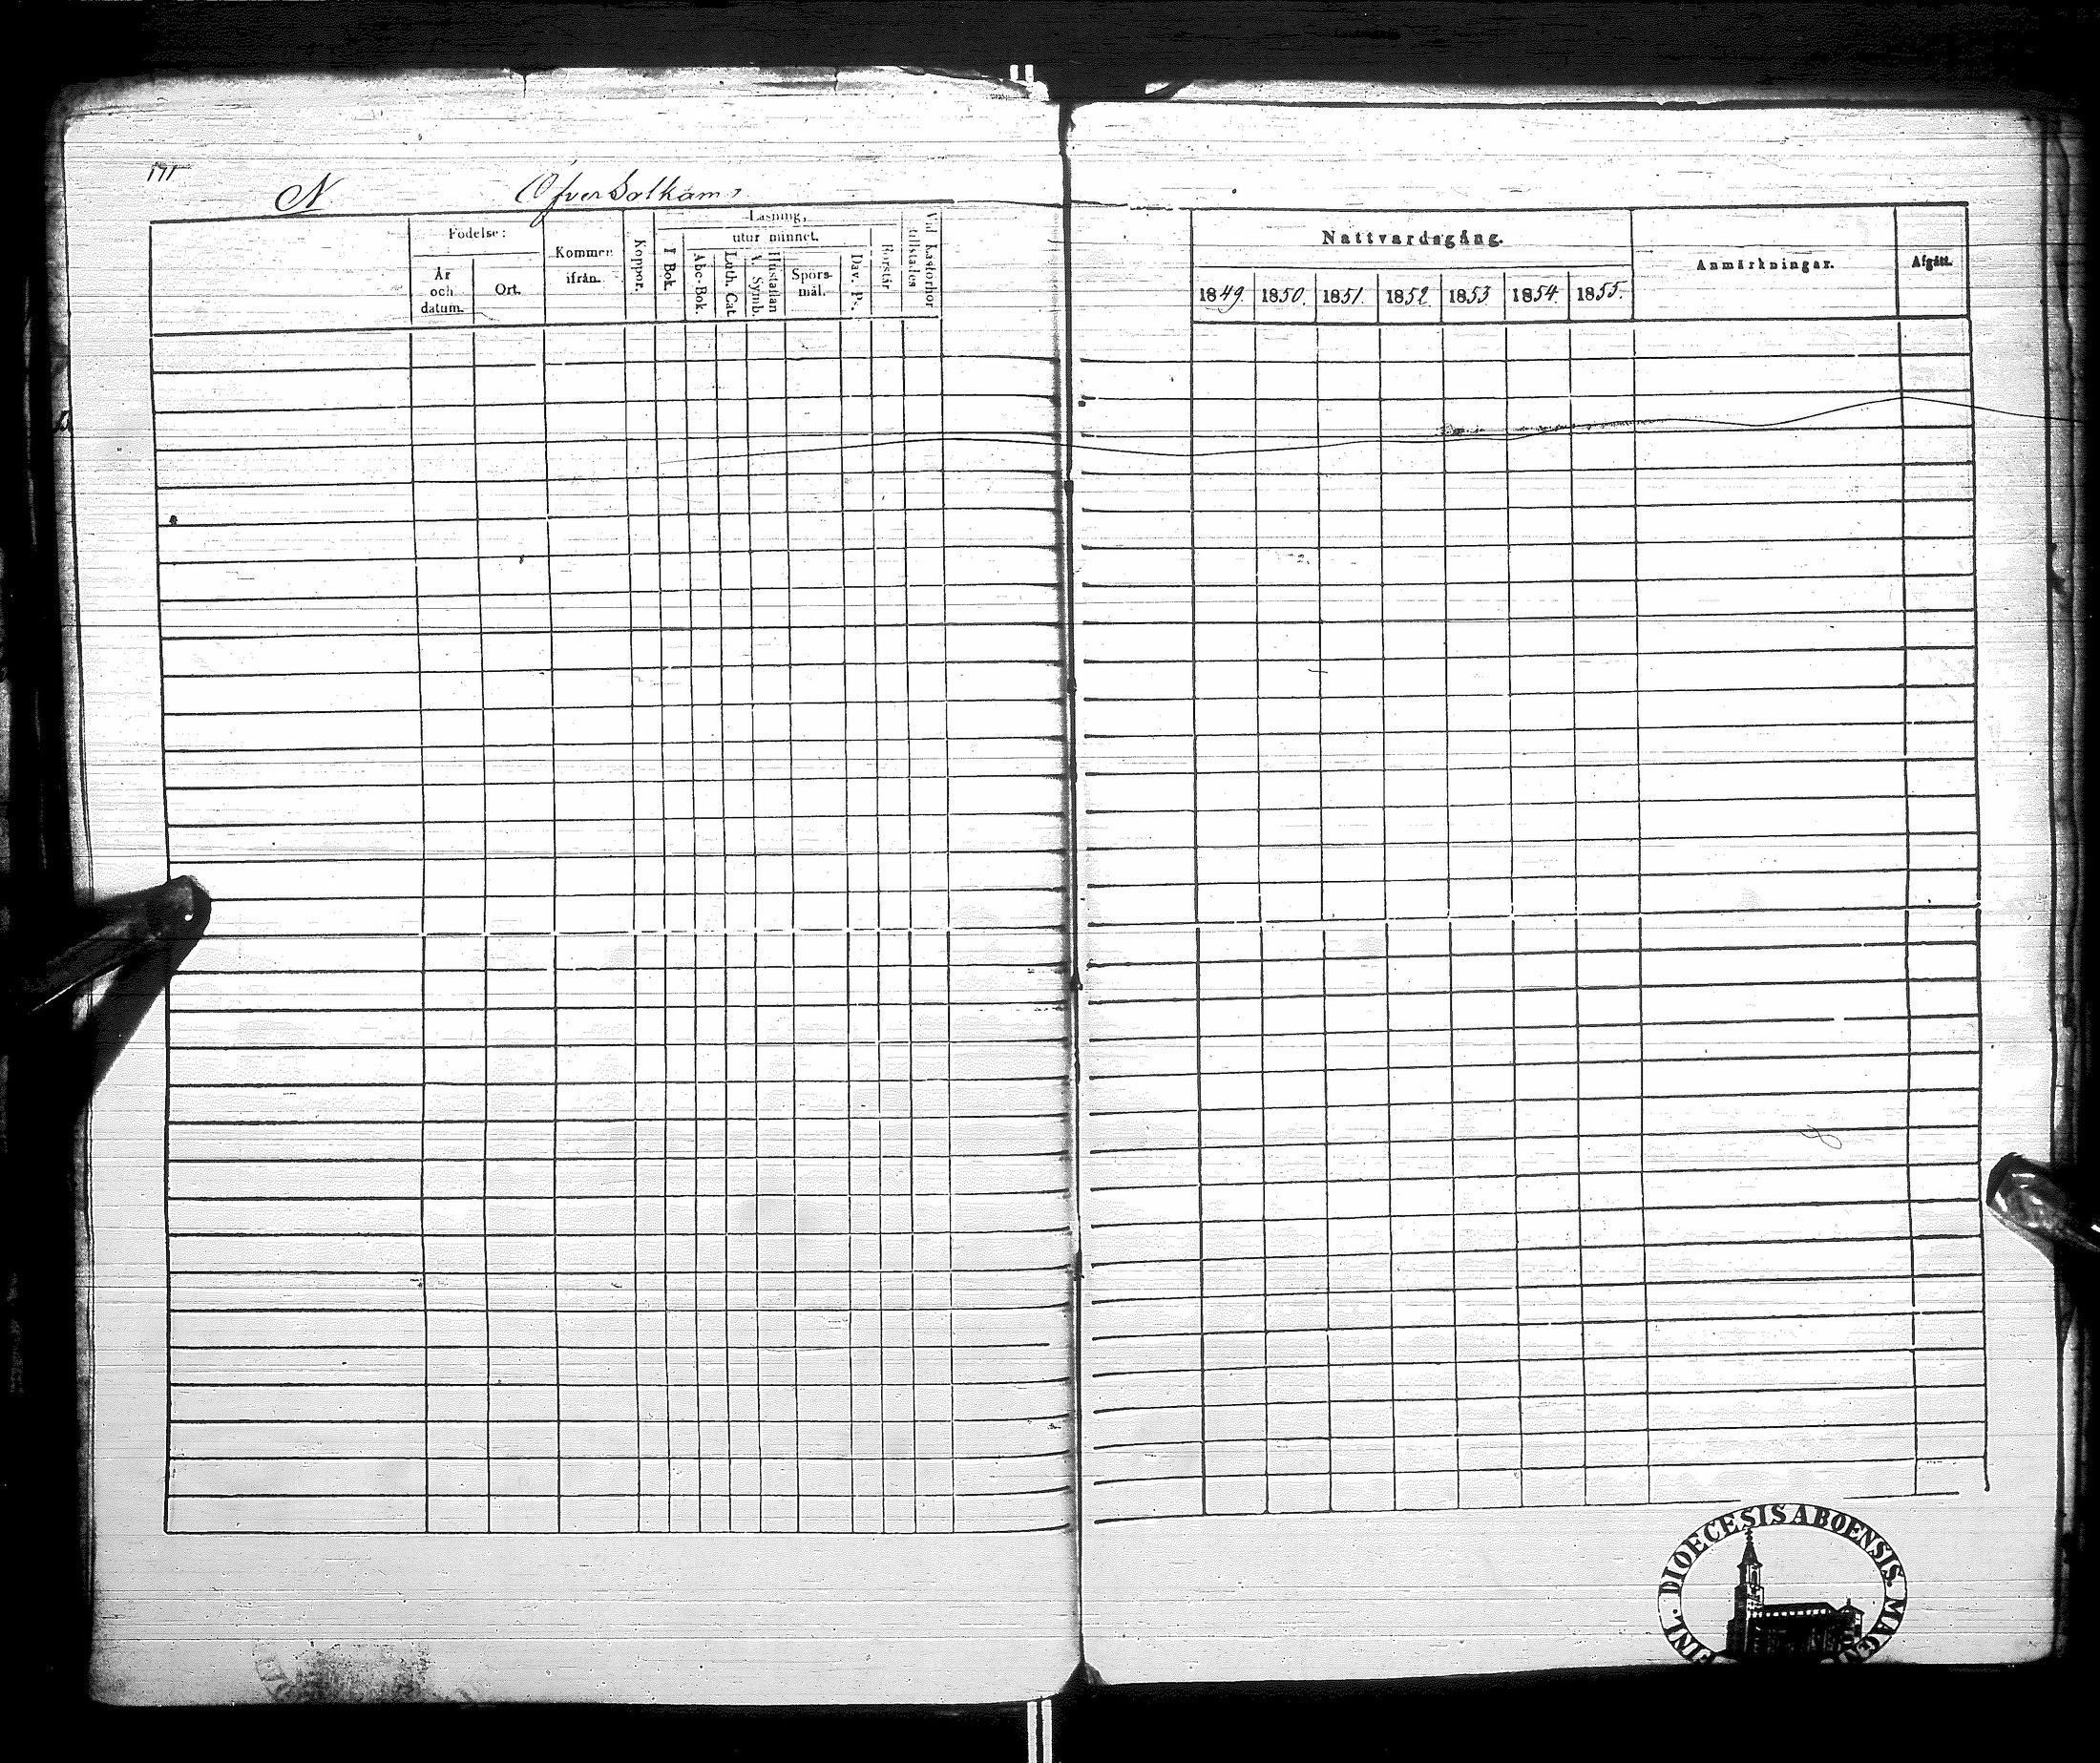 191
N Öfver Solkam
Födelse:
År och datum.
Ort.
Kommer ifrån.
Koppor.
Läsning,
utur minnet.
I Bok.
Abc-Bok.
Luth. Cat.
A. Symb.
Hustaflan
Spörs-mål.
Dav. Ps.
Förstår
Vid Läsförhör tillstädes
Nattvardsgång.
1849. 1850. 1851. 1852. 1853. 1854. 1855.
Anmärkningar.
Afgått.
FINL. DIOECESIS ABOENSIS. MAGN